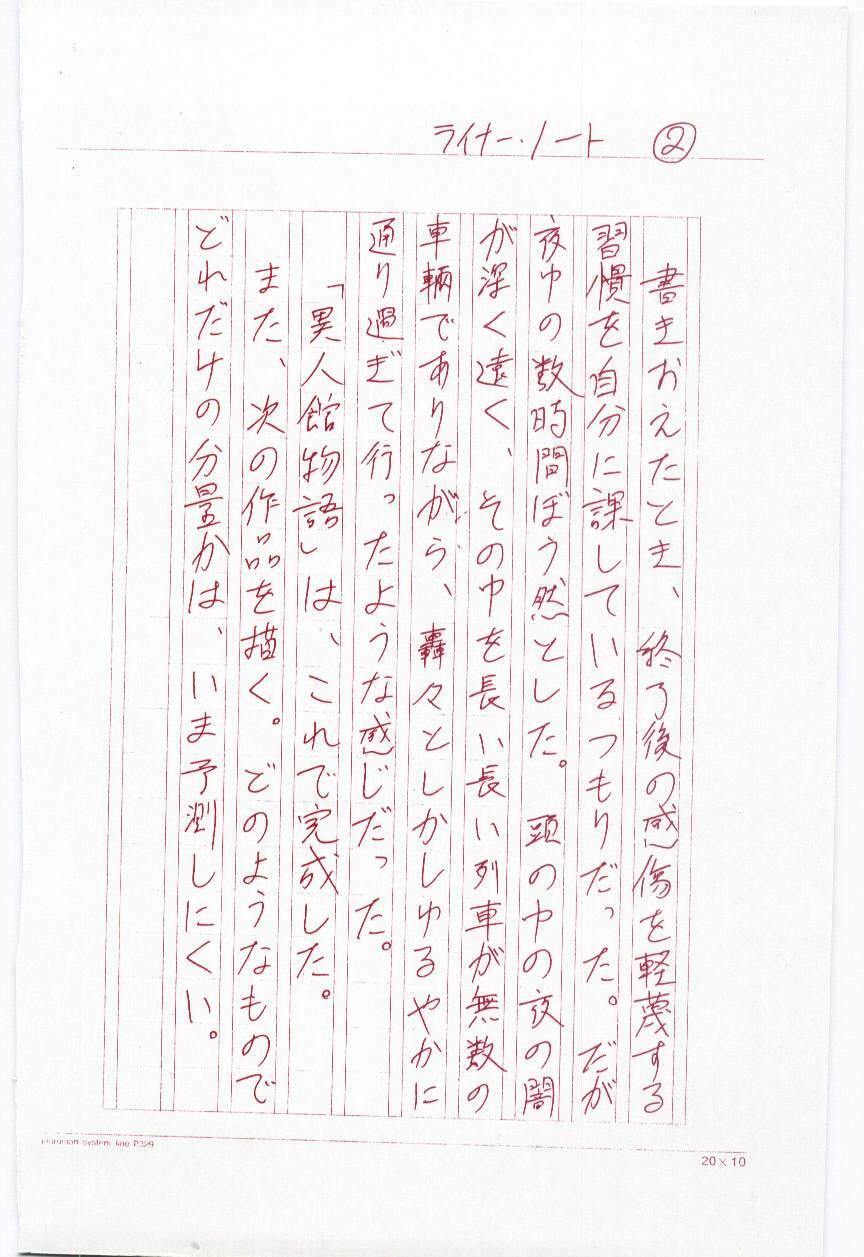 ライナー・ノート ②
書きおえたとき、終了後の感傷を軽蔑する
習慣を自分に課しているつもりだった。だが
夜中の数時間ぼう然とした。頭の中の夜の闇
が深く遠く、その中を長い長い列車が無数の
車輌でありながら、轟々としかしゆるやかに
通り過ぎて行ったような感じだった。
「異人館物語」は、これで完成した。
また、次の作品を描く。どのようなもので
どれだけの分量かは、いま予測しにくい。
system line P329
20×10